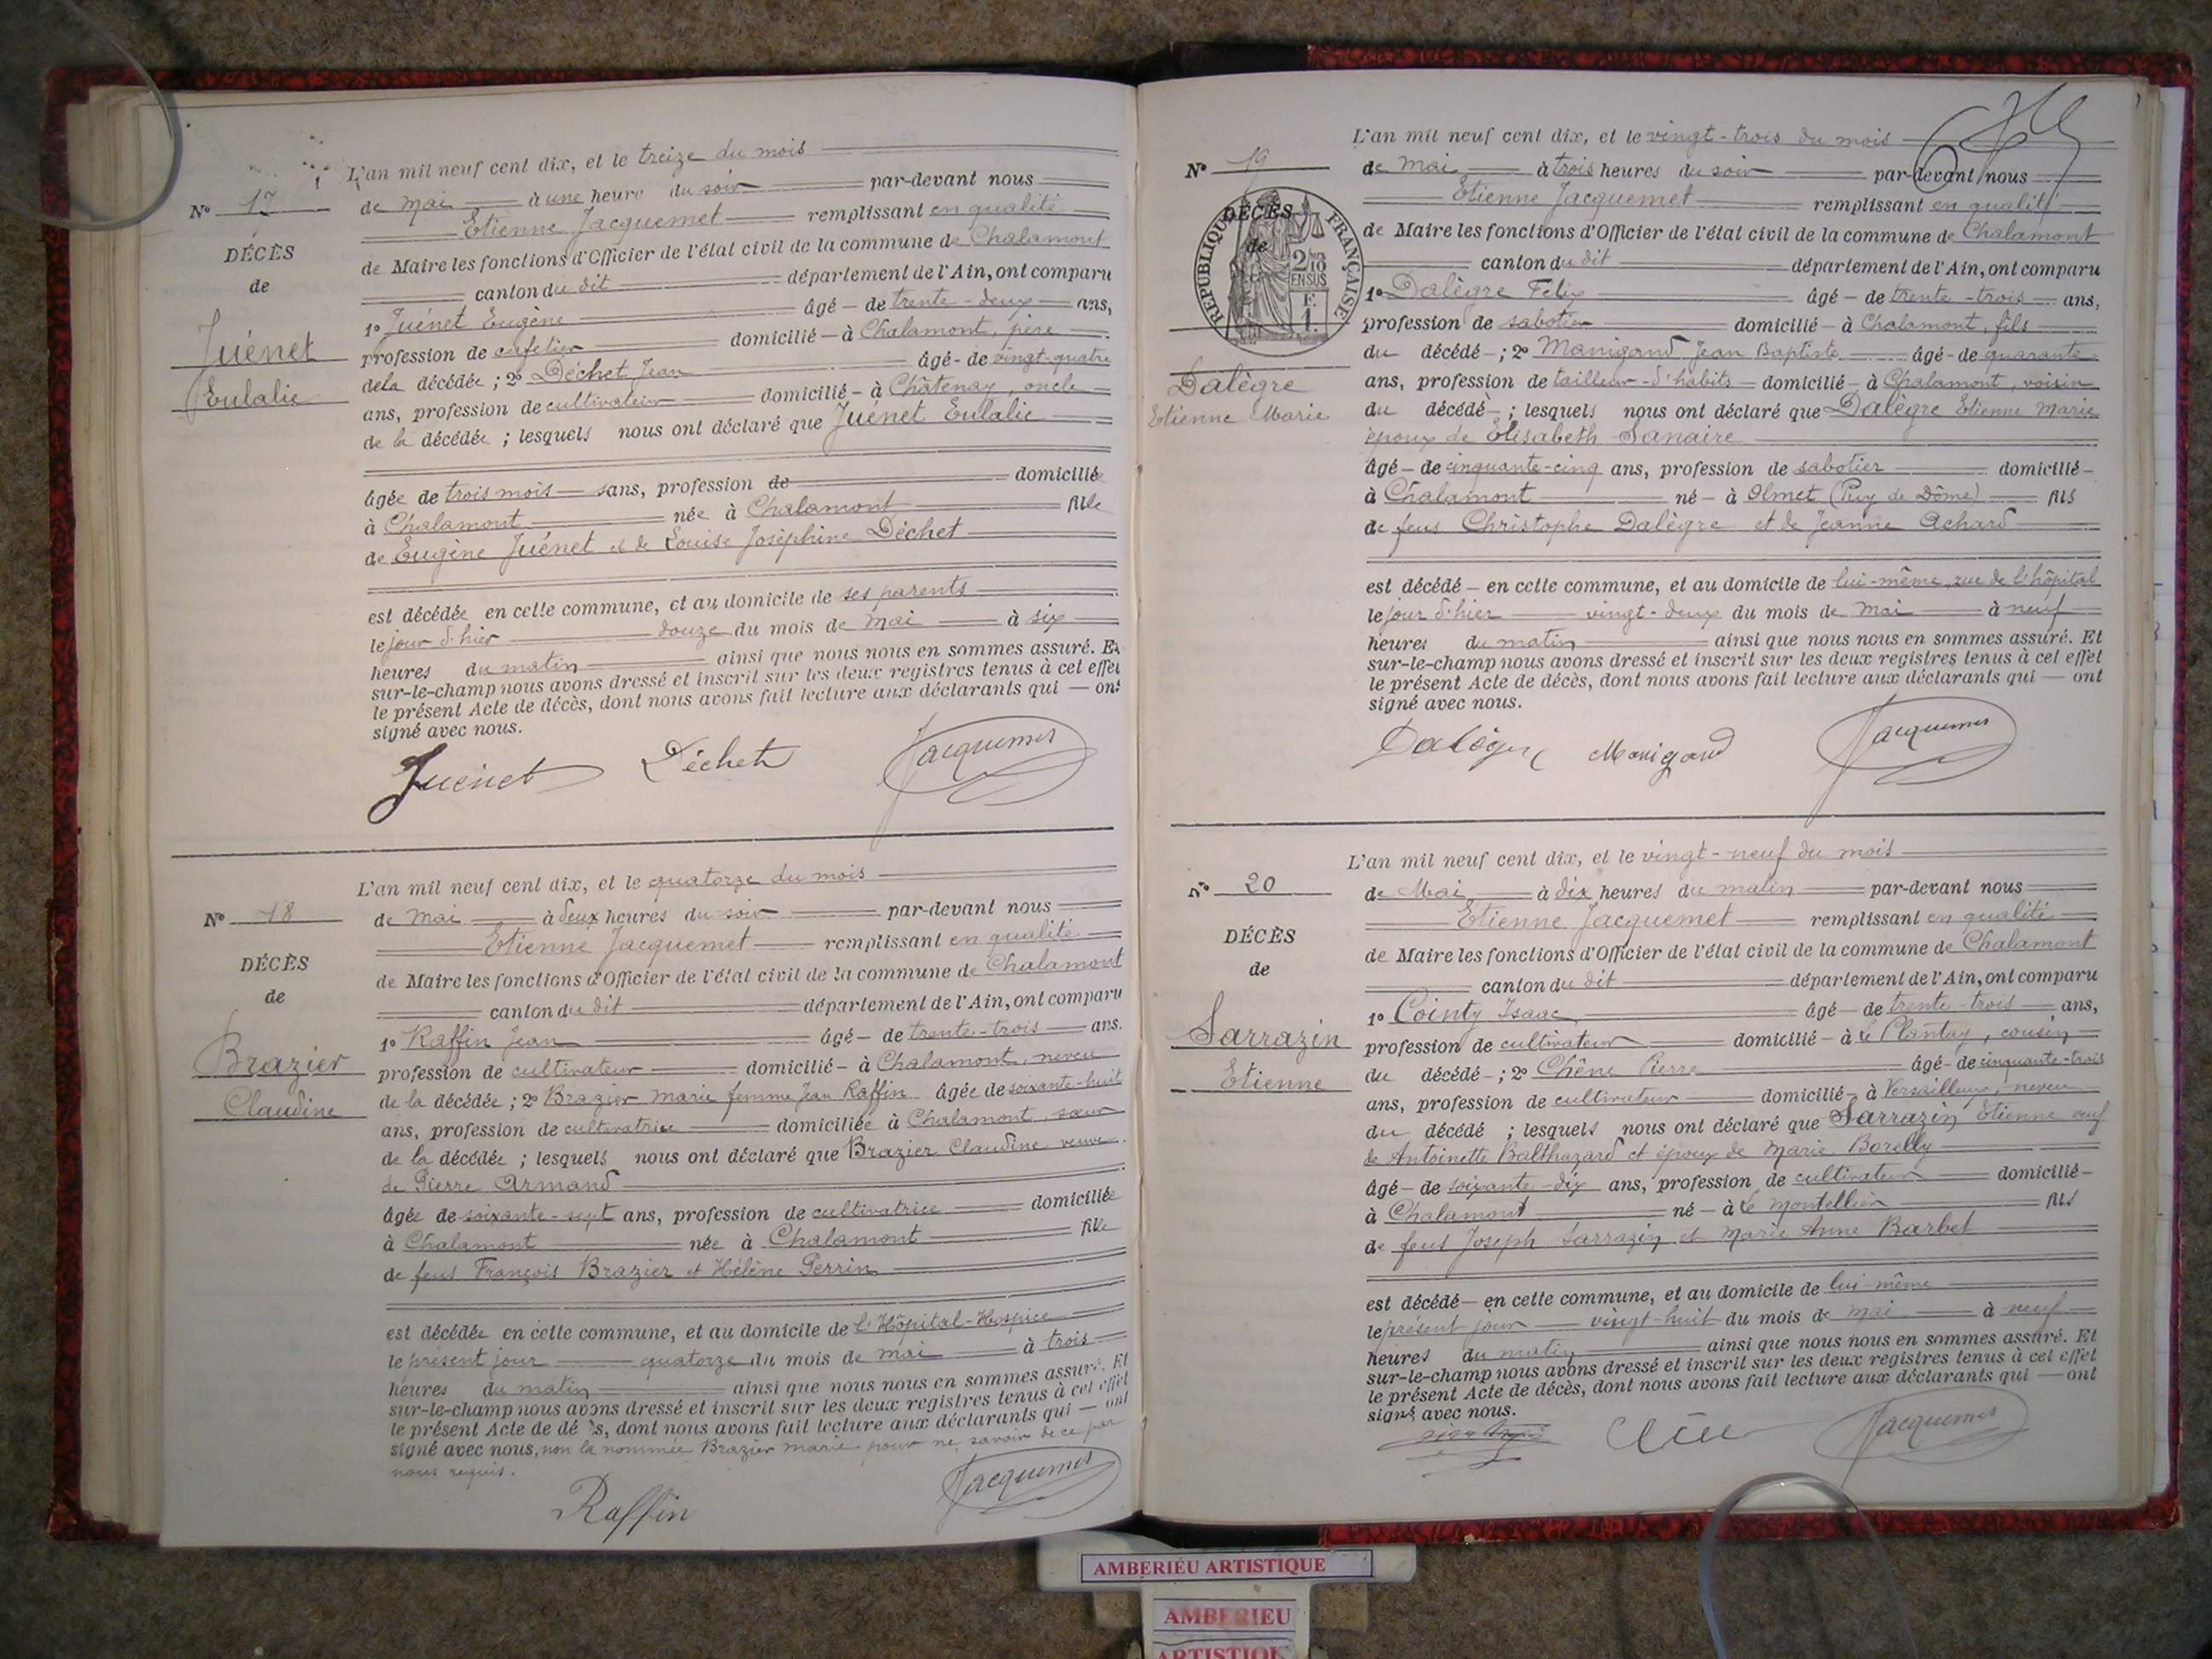 L'an mil neuf cent dix, et le treize du mois
Nº 17
de Mai à une heure du soir par-devant nous
Etienne Jacquemet remplissant en qualité
DÉCÈS
de
de Maire les fonctions d'Officier de l'état civil de la commune de Chalamont
canton du dit département de l'Ain, ont comparu
1º Juénet Eugène âgé - de trente-deux ans,
Juénet
Eulalie
profession de cafetier domicilié - à Chalamont, père
de la décédée ; 2º Déchet Jean âgé - de vingt-quatre
ans, profession de cultivateur domicilié - à Châtenay, oncle
de la décédée ; lesquels nous ont déclaré que Juénet Eulalie
âgée de trois mois sans, profession de domiciliée
à Chalamont née à Chalamont fille
de Eugène Juénet et de Louise Joséphine Déchet
est décédée en cette commune, et au domicile de ses parents
le jour d'hier douze du mois de Mai à six
heures du matin ainsi que nous nous en sommes assuré. Et
sur-le-champ nous avons dressé et inscrit sur les deux registres tenus à cet effet
le présent Acte de décès, dont nous avons fait lecture aux déclarants qui — ont
signé avec nous.
Juénet Déchet Jacquemet
L'an mil neuf cent dix, et le quatorze du mois
Nº 18
de Mai à deux heures du soir par-devant nous
Etienne Jacquemet remplissant en qualité
DÉCÈS
de
de Maire les fonctions d'Officier de l'état civil de la commune de Chalamont
canton du dit département de l'Ain, ont comparu
1º Raffin Jean âgé - de trente-trois ans.
Brazier
Claudine
profession de cultivateur domicilié - à Chalamont, neveu
de la décédée ; 2º Brazier Marie femme Jean Raffin âgée de soixante-huit
ans, profession de cultivatrice domiciliée à Chalamont, sœur
de la décédée ; lesquels nous ont déclaré que Brazier Claudine veuve
de Pierre Armand
âgée de soixante-sept ans, profession de cultivatrice domiciliée
à Chalamont née à Chalamont fille
de feus François Brazier et Hélène Perrin
est décédée en cette commune, et au domicile de l'Hôpital-Hospice
le présent jour quatorze du mois de Mai à trois
heures du matin ainsi que nous nous en sommes assuré. Et
sur-le-champ nous avons dressé et inscrit sur les deux registres tenus à cet effet
le présent Acte de décès, dont nous avons fait lecture aux déclarants qui — ont
signé avec nous, non la nommée Brazier Marie pour ne savoir de ce par
nous requis.
Raffin Jacquemet
L'an mil neuf cent dix, et le vingt-trois du mois
Nº 19
de Mai à trois heures du soir par-devant nous
Etienne Jacquemet remplissant en qualité
DÉCÈS
de
RÉPUBLIQUE FRANÇAISE
2/10 EN SUS
F.
1.
de Maire les fonctions d'Officier de l'état civil de la commune de Chalamont
canton du dit département de l'Ain, ont comparu
1º Dalègre Felix âgé - de trente-trois ans,
profession de sabotier domicilié - à Chalamont, fils
Dalègre
Etienne Marie
du décédé - ; 2º Manigand Jean Baptiste âgé - de quarante
ans, profession de tailleur-d'habits domicilié - à Chalamont, voisin
du décédé - ; lesquels nous ont déclaré que Dalègre Etienne Marie
époux de Elisabeth Sanaire
âgé - de cinquante-cinq ans, profession de sabotier domicilié -
à Chalamont né - à Olmet (Puy de Dôme) fils
de feus Christophe Dalègre et de Jeanne Achard
est décédé - en cette commune, et au domicile de lui-même, rue de l'hôpital
le jour d'hier vingt-deux du mois de Mai à neuf
heures du matin ainsi que nous nous en sommes assuré. Et
sur-le-champ nous avons dressé et inscrit sur les deux registres tenus à cet effet
le présent Acte de décès, dont nous avons fait lecture aux déclarants qui — ont
signé avec nous.
Dalègre Manigand Jacquemet
L'an mil neuf cent dix, et le vingt-neuf du mois
Nº 20
de Mai à dix heures du matin par-devant nous
Etienne Jacquemet remplissant en qualité
DÉCÈS
de
de Maire les fonctions d'Officier de l'état civil de la commune de Chalamont
canton du dit département de l'Ain, ont comparu
1º Cointy Isaac âgé - de trente-trois ans,
Sarrazin
Etienne
profession de cultivateur domicilié - à Le Plantay, cousin
du décédé - ; 2º Chêne Pierre âgé - de cinquante-trois
ans, profession de cultivateur domicilié - à Versailleux, neveu
du décédé ; lesquels nous ont déclaré que Sarrazin Etienne veuf
de Antoinette Balthazard et époux de Marie Borelly
âgé - de soixante-dix ans, profession de cultivateur domicilié -
à Chalamont né - à Le Montellier fils
de feus Joseph Sarrazin et Marie Anne Barbet
est décédé - en cette commune, et au domicile de lui-même
le présent jour vingt-huit du mois de Mai à neuf
heures du matin ainsi que nous nous en sommes assuré. Et
sur-le-champ nous avons dressé et inscrit sur les deux registres tenus à cet effet
le présent Acte de décès, dont nous avons fait lecture aux déclarants qui — ont
signé avec nous.
Jacquemet
AMBERIEU ARTISTIQUE
AMBERIEU
ARTISTIQUE